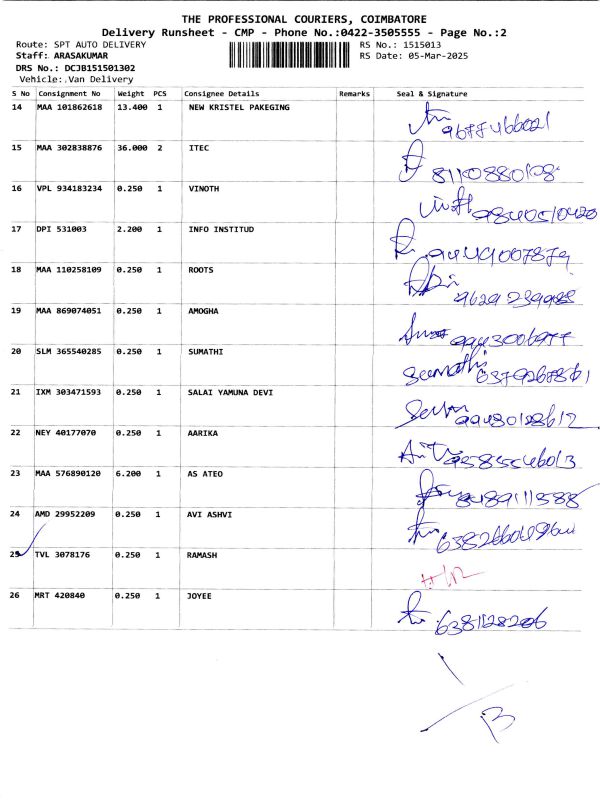 THE PROFESSIONAL COURIERS, COIMBATORE
Delivery Runsheet - CMP - Phone No.:0422-3505555 - Page No.:2
Route: SPT AUTO DELIVERY RS No.: 1515013
Staff: ARASAKUMAR RS Date: 05-Mar-2025
DRS No.: DCJB151501302
Vehicle:.Van Delivery
S No Consignment No Weight PCS Consignee Details Remarks Seal & Signature
14 MAA 101862618 13.400 1 NEW KRISTEL PAKEGING
9677466021
15 MAA 302838876 36.000 2 ITEC
8110880108
16 VPL 934183234 0.250 1 VINOTH
9840510420
17 DPI 531003 2.200 1 INFO INSTITUD
9449007879
18 MAA 110258109 0.250 1 ROOTS
9629239988
19 MAA 869074051 0.250 1 AMOGHA
20 SLM 365540285 0.250 1 SUMATHI
Sumathi
21 IXM 303471593 0.250 1 SALAI YAMUNA DEVI
22 NEY 40177070 0.250 1 AARIKA
23 MAA 576890120 6.200 1 AS ATEO
8489111588
24 AMD 29952209 0.250 1 AVI ASHVI
25 TVL 3078176 0.250 1 RAMASH
26 MRT 420840 0.250 1 JOYEE
6381128206